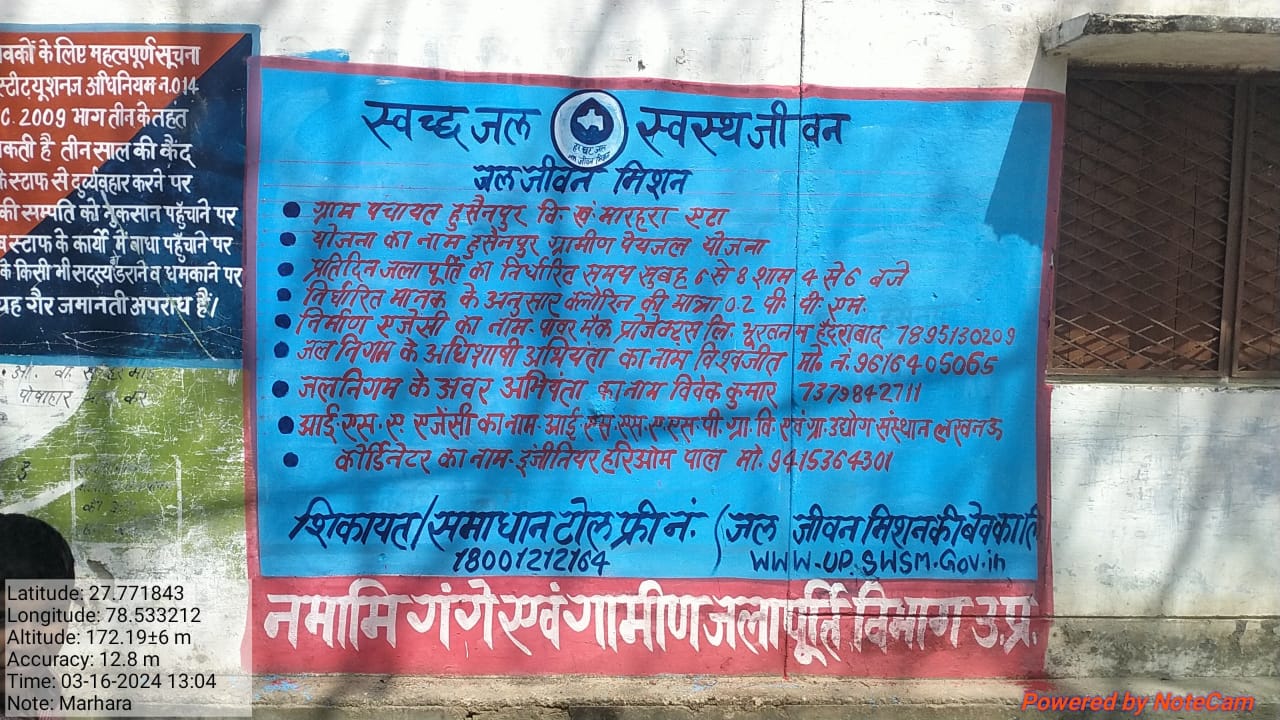 वकों के लिए महत्वपूर्ण सूचना
स्टीट्यूशनज अधिनियम न.014
C. 2009 भाग तीन के तहत
कती है तीन साल की कैंद
के स्टाफ से दुर्व्यवहार करने पर
की सम्पति को नुकसान पहुँचाने पर
व स्टाफ के कार्यो में बाधा पहुँचाने पर
के किसी भी सदस्य डराने व धमकाने पर
यह गैर जमानती अपराध हैं।
स्वच्छ जल स्वस्थ जीवन
हर घर जल
जल जीवन मिशन
जल जीवन मिशन
ग्राम पंचायत हुसैनपुर वि. खं. मारहरा एटा
योजना का नाम हुसैनपुर ग्रामीण पेयजल योजना
प्रतिदिन जलापूर्ति का निर्धारित समय सुबह 6 से 8 शाम 4 से 6 बजे
निर्धारित मानक के अनुसार क्लोरिन की मात्रा 0.2 पी. पी. एम.
निर्माण एजेंसी का नाम. पावर मैक प्रोजेक्ट्स लि. हैदराबाद 7895130209
जल निगम के अधिशाषी अभियंता का नाम विश्वजीत मो. नं. 9616405065
जलनिगम के अवर अभियंता का नाम विवेक कुमार 7379842711
आई.एस.ए. एजेंसी का नाम. आई.एस.एस.ए.एस.पी. ग्रा. वि. एवं ग्रा. उद्योग संस्थान लखनऊ
कोर्डिनेटर का नाम. इंजीनियर हरिओम पाल मो. 9415364301
शिकायत/समाधान टोल फ्री नं. (जल जीवन मिशन की बेवकालि
18001212164 WWW.UP.SWSM.Gov.in
नमामि गंगे एवं गामीण जलापूर्ति विभाग उ.प्र.
पोषाहार
Latitude: 27.771843
Longitude: 78.533212
Altitude: 172.19±6 m
Accuracy: 12.8 m
Time: 03-16-2024 13:04
Note: Marhara
Powered by NoteCam